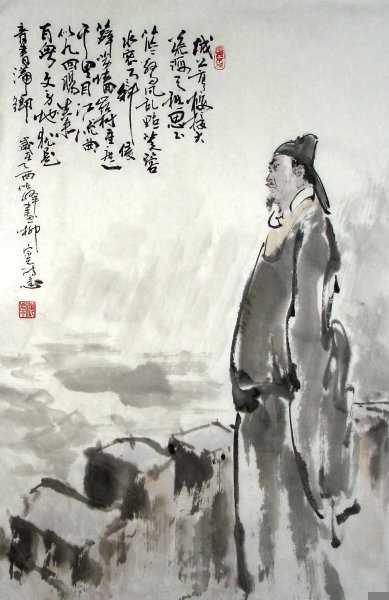 城上高楼接大
荒海天愁思正
茫茫惊风乱飐芙蓉
水密雨斜侵
薜荔墙岭树重遮
千里目江流曲
似九回肠共来
百粤文身地犹是
音书滞一乡 岁在乙酉 峰画柳宗元诗意